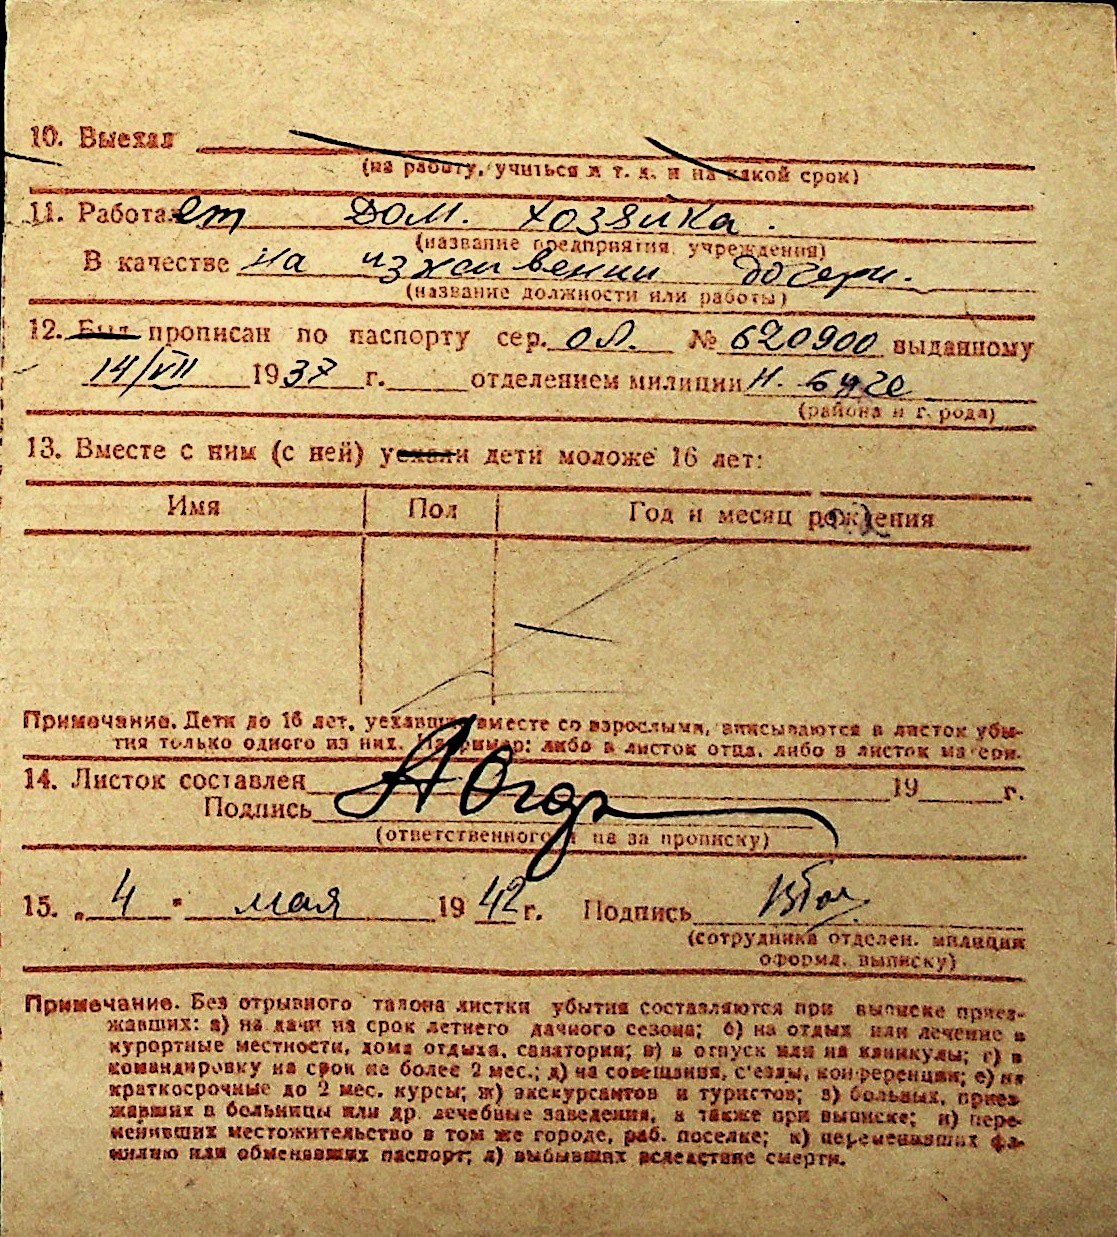 10. Выехал
(на работу, учиться и т. д. и на какой срок)
11. Работает дом. хозяйка.
(название предприятия, учреждения)
В качестве на иждивении дочери.
(название должности или работы)
12. Был прописан по паспорту сер. № 620900 выданному
14/VII 1937 г. отделением милиции
(района и города)
13. Вместе с ним (с ней) уехали дети моложе 16 лет:
Имя Пол Год и месяц рождения
Примечание. Дети до 16 лет, уехавшие вместе со взрослыми, вписываются в листок убы-
тия только одного из них. Например: либо в листок отца, либо в листок матери.
14. Листок составлен 19 г.
Подпись
(ответственного лица за прописку)
15. „4" мая 1942 г. Подпись
(сотрудника отделен. милиции
оформл. выписку)
Примечание. Без отрывного талона листки убытия составляются при выписке приез-
жавших: а) на дачи на срок летнего дачного сезона; б) на отдых или лечение в
курортные местности, дома отдыха, санатория; в) в отпуск или на каникулы; г) в
командировку на срок не более 2 мес.; д) на совещания, с'езды, конференции; е) на
краткосрочные до 2 мес. курсы; ж) экскурсантов и туристов; з) больных, приез-
жавших в больницы или др. лечебные заведения, а также при выписке; и) пере-
менивших местожительство в том же городе, раб. поселке; к) переменивших фа-
милию или обменявших паспорт; л) выбывших вследствие смерти.